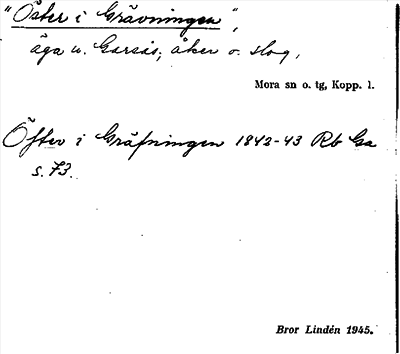 "Öster i Grävningen",
äga u. Garsås; åker o. slog,
Mora sn o. tg, Kopp. l.
Öfter i Gräfningen 1842-43 Rb Ga
s. 73.
Bror Lindén 1945.